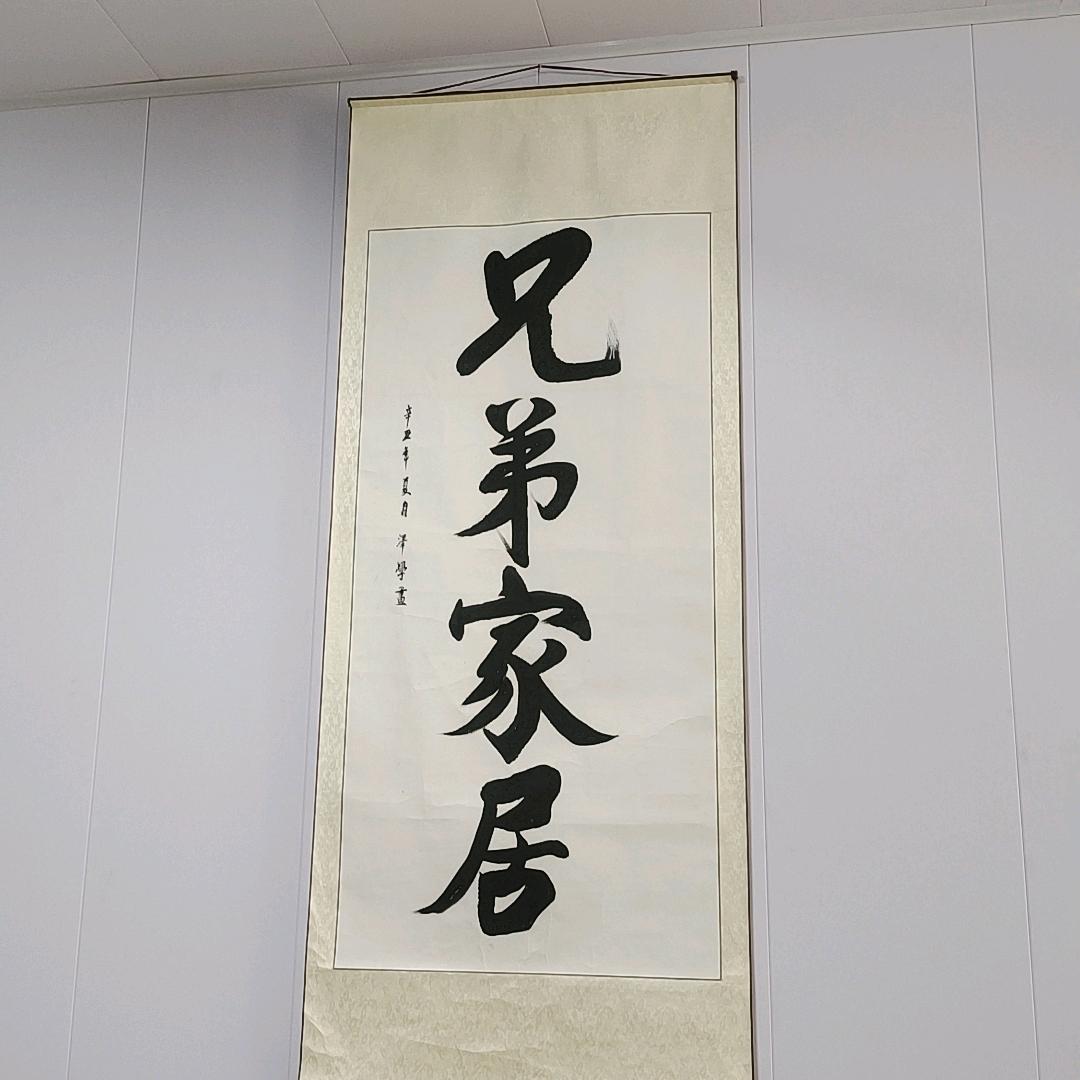 兄弟家居
辛丑年夏月泽學畫